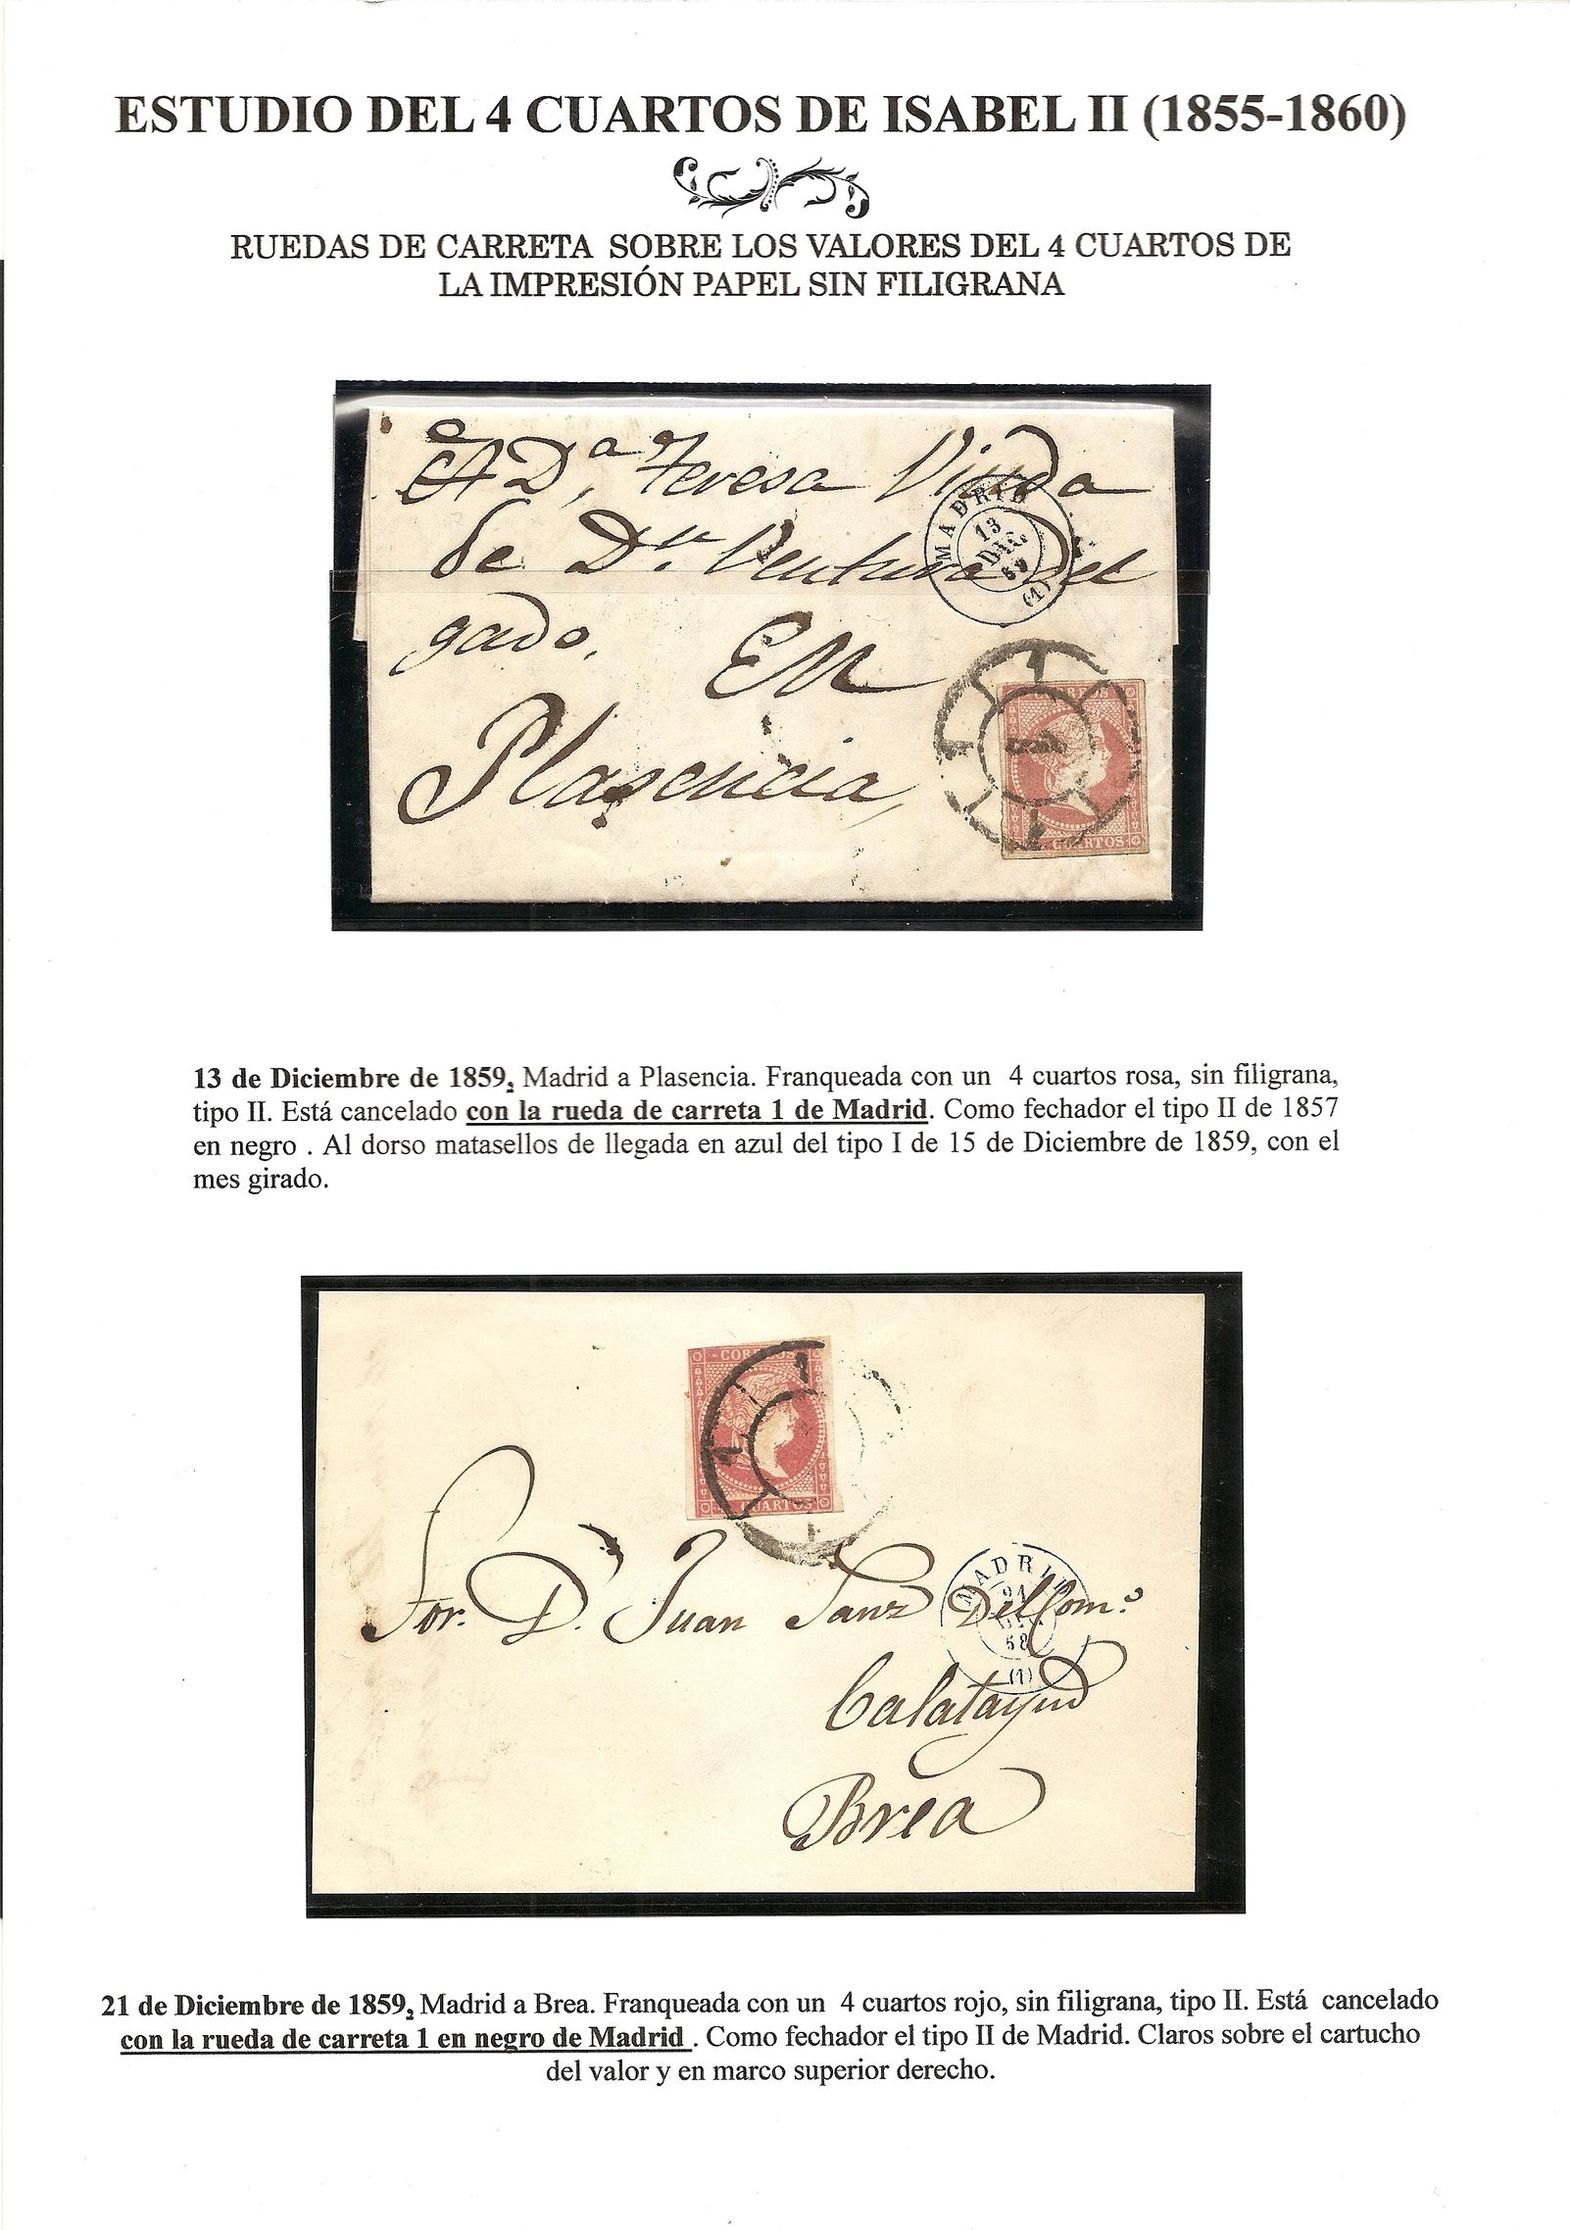 ESTUDIO DEL 4 CUARTOS DE ISABEL II (1855-1860)
RUEDAS DE CARRETA SOBRE LOS VALORES DEL 4 CUARTOS DE
LA IMPRESIÓN PAPEL SIN FILIGRANA
A D.ª Teresa Viuda
de D.n Ventura Del
gado,
EN
Plasencia,
MADRID
13
DIC.
59
(1)
1
1
1
CORREOS
CUARTOS
13 de Diciembre de 1859, Madrid a Plasencia. Franqueada con un 4 cuartos rosa, sin filigrana,
tipo II. Está cancelado con la rueda de carreta 1 de Madrid. Como fechador el tipo II de 1857
en negro . Al dorso matasellos de llegada en azul del tipo I de 15 de Diciembre de 1859, con el
mes girado.
CORREOS
1
1
1
CUARTOS
Sor. D. Juan Sanz Del Com.o
MADRID
21
58
(1)
Calatayud
Brea
21 de Diciembre de 1859, Madrid a Brea. Franqueada con un 4 cuartos rojo, sin filigrana, tipo II. Está cancelado
con la rueda de carreta 1 en negro de Madrid . Como fechador el tipo II de Madrid. Claros sobre el cartucho
del valor y en marco superior derecho.